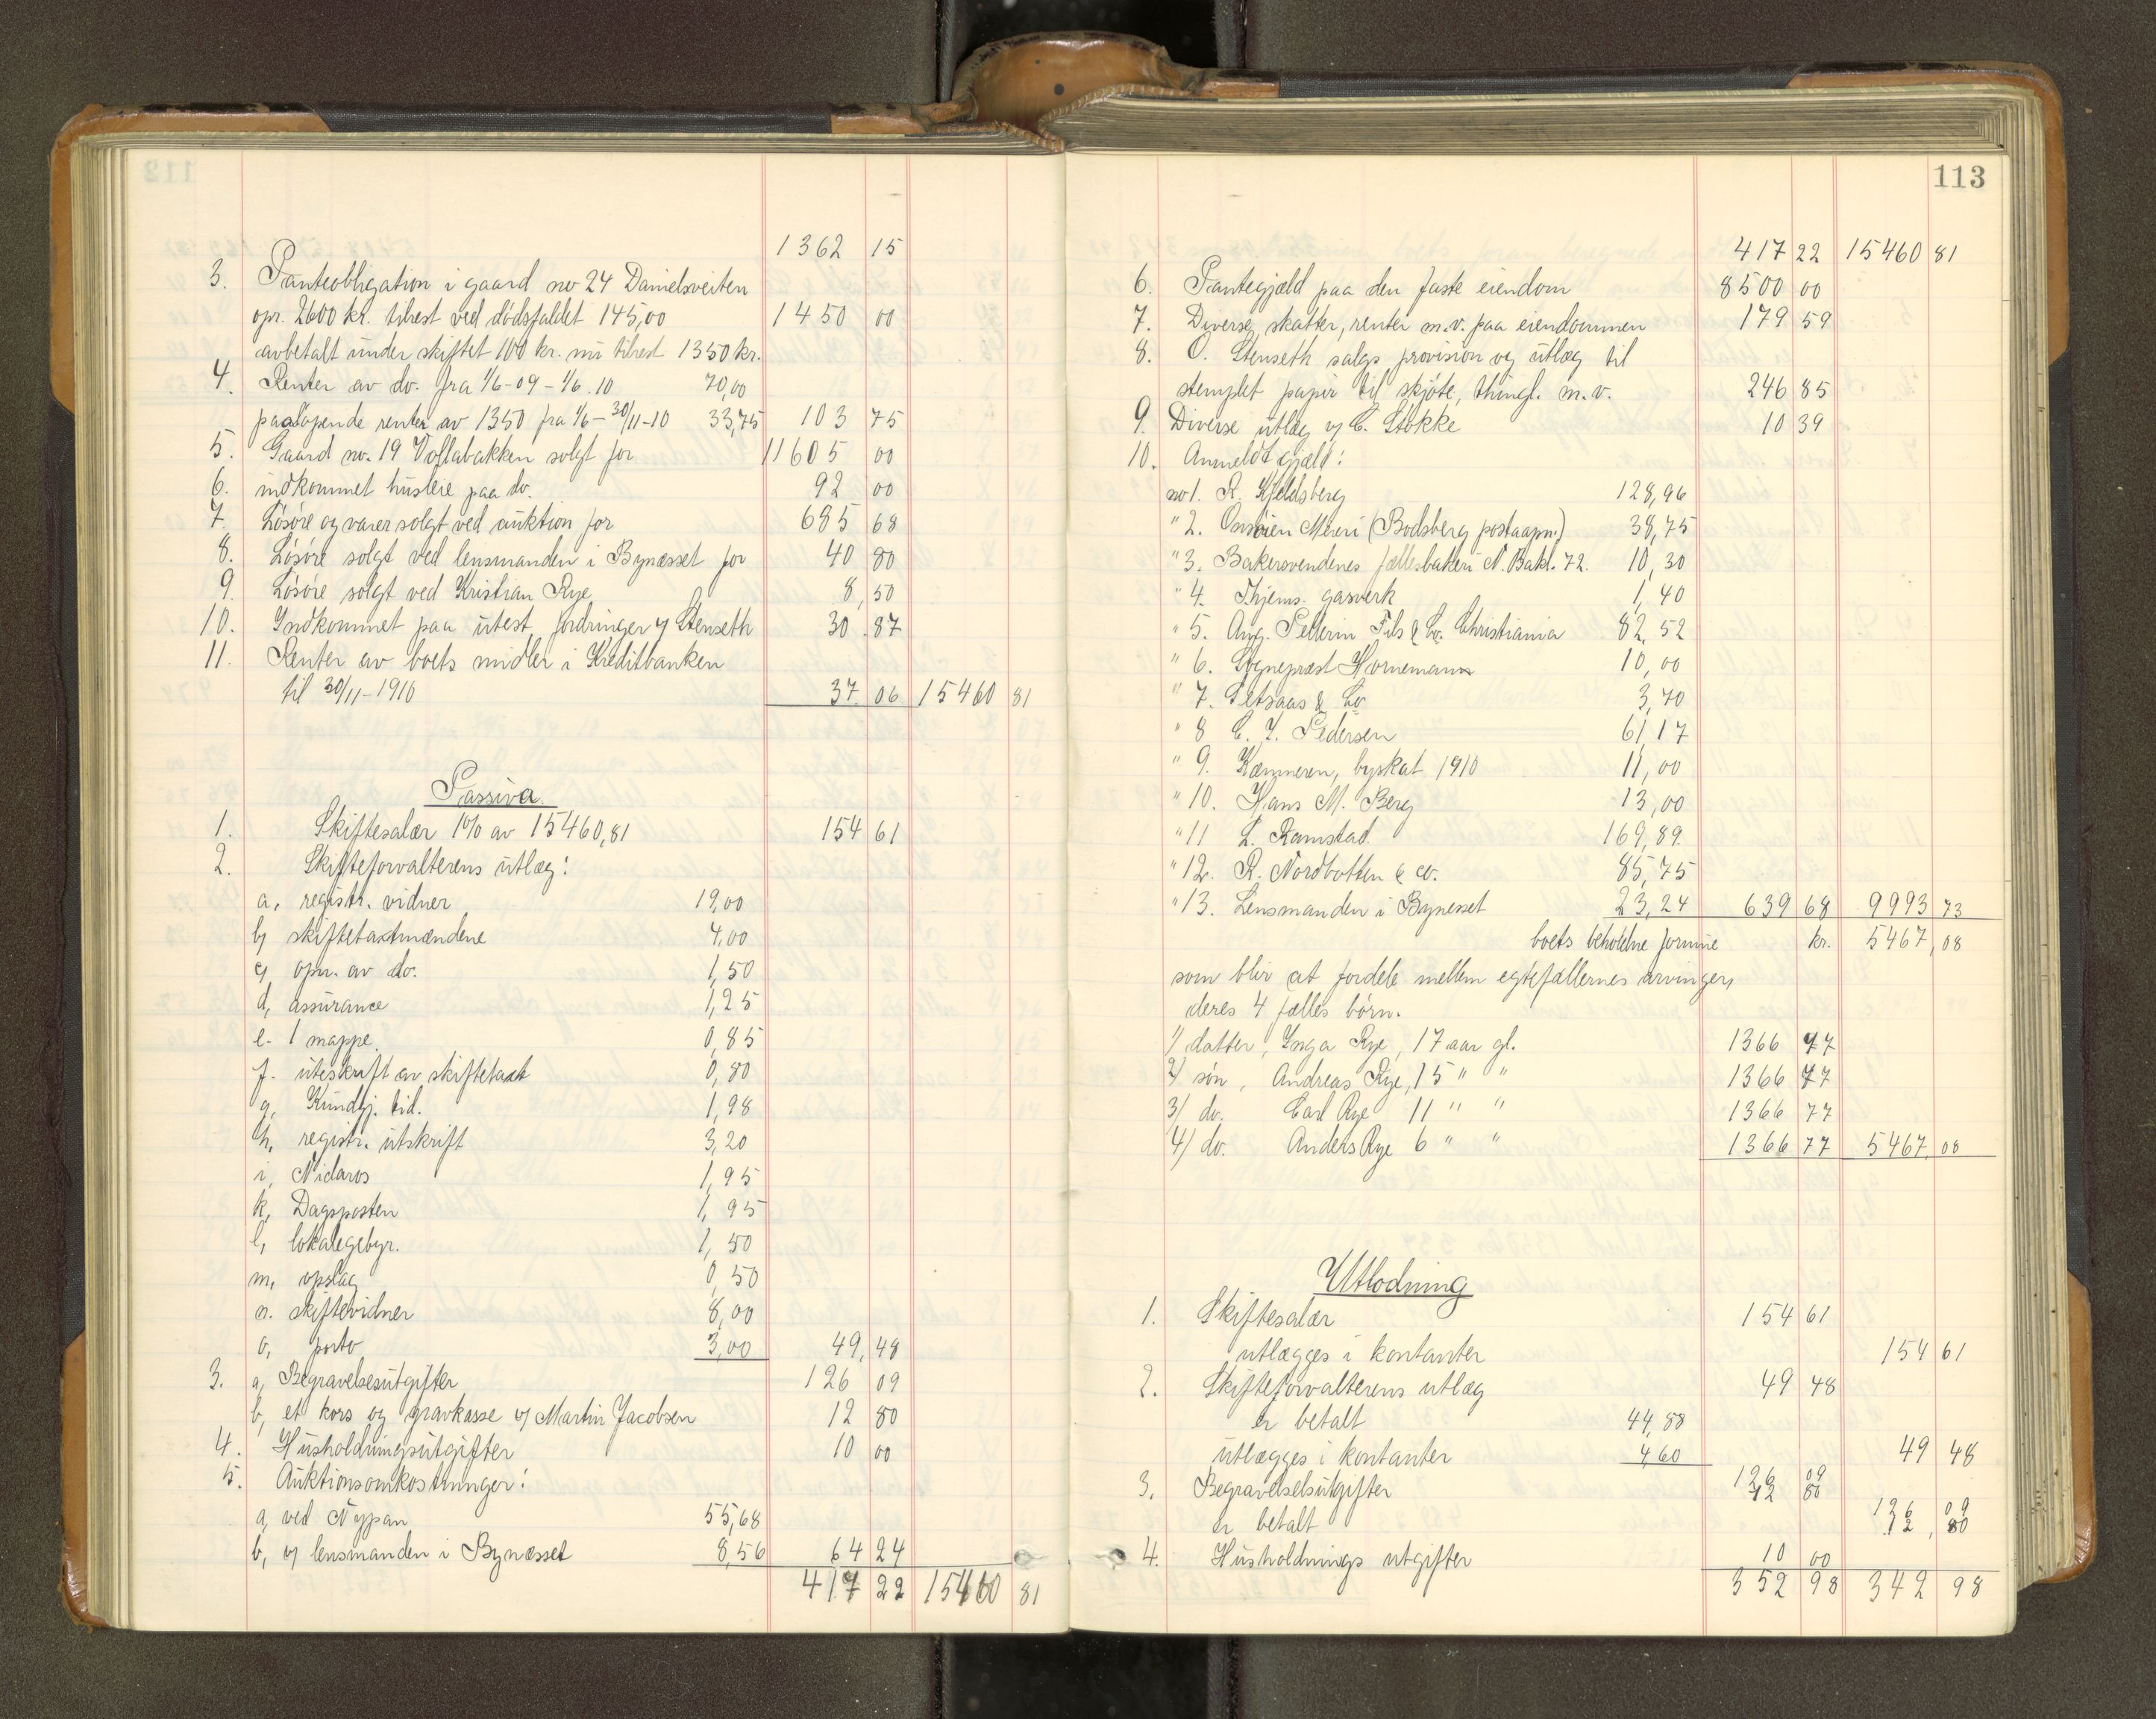 113
1362 15
3. Panteobligation i gaard no 24 Danielsveiten
opr. 2600 kr. tilrest ved dödsfaldet 145,00 1450 00
avbetalt under skiftet 100 kr. nu tilrest 1350 kr.
4. Renter av do. fra 1/6-09-1/6.10 70,00
paalöpende renter av 1350 fra 1/6-30/11-10 33,75 103 75
5. Gaard no. 19 Vollabakken solgt for 11605 00
6. indkommet husleie paa do. 92 00
7. Lösöre og varer solgt ved auktion for 685 68
8. Lösöre solgt ved lensmanden i Bynæsset for 40 80
9. Lösöre solgt ved Kristian Rye 8,50
10. Indkommet paa utest. fordringer v/ Stenseth 30.87
11. Renter av boets midler i Kreditbanken
til 30/11-1910 37.06 15460 81
Passiva.
1. Skiftesalær 1% av 15460,81 154 61
2. Skifteforvalterens utlæg:
a, registr. vidner 19,00
b, skiftetaxtmændene 4,00
c, opn. av do. 1,50
d, assurance 1,25
e. 1 mappe. 0,85
f. uteskrift av skiftetaxt 0,80
g, Kundgj. tid. 1,98
h, registr. utskrift 3,20
i, Nidaros 1,95
k, Dagsposten 1,95
l, lokalegebyr. 1,50
m, opslag 0,50
n. skiftevidner 8,00
o, porto 3,00 49,48
3. a, Begravelsesutgifter 126 09
b, et kors og gravkasse v/ Martin Jacobsen 12 80
4. Husholdningsutgifter 10 00
5. Auktionsomkostninger:
a, ved Nypan 55,68
b, v/ lensmanden i Bynæsset 8,56 64 24
417 22 15460 81
417 22 15460 81
6. Pantegjæld paa den faste eiendom 8500 00
7. Diverse skatter, renter m.v. paa eiendommen 179 59
8. O. Stenseth salgs provision og utlæg til
stemplet papir til skjöte, thingl. m.v. 246 85
9. Diverse utlæg v/ C. Stokke 10 39
10. Anmeldt gjæld:
no 1. R. Kjeldsberg 128,96
" 2. Meieri (Bodsberg postaapn.) 38,75
" 3. Bakersvendenes fællesbakeri N. Bakl. 72. 10,30
" 4. Thjems. gasverk 1,40
" 5. Aug. Pellerin Fils & Co. Christiania 82,52
" 6. Sogneprest Hornemann 10,00
" 7. & Co 3,70
" 8 C. I. Pedersen 61,17
" 9. Kæmneren, byskat 1910 11,00
" 10. Hans M. Berg 13,00
" 11 L. Ramstad 169,89
" 12. R. Nordbotten & co. 85,75
" 13. Lensmanden i Bynesset 23,24 639 68 9993 73
boets beholdne formue kr. 5467,08
som blir at fordele mellem egtefællernes arvinger,
deres 4 fælles börn.
1/ datter, Inga Rye, 17 aar gl. 1366 77
2/ sön, Andreas Rye, 15 " " 1366 77
3/ do. Carl Rye 11 " " 1366 77
4/ do. Anders Rye 6 " " 1366 77 5467,08
Utlodning
1. Skiftesalær 154 61
utlægges i kontanter 154 61
2. Skifteforvalterens utlæg 49 48
er betalt 44,88
utlægges i kontanter 4,60 49 48
3. Begravelsesutgifter 126 09
12 80
er betalt 126 09
12,80
4. Husholdnings utgifter 10 00
352 98 342 98